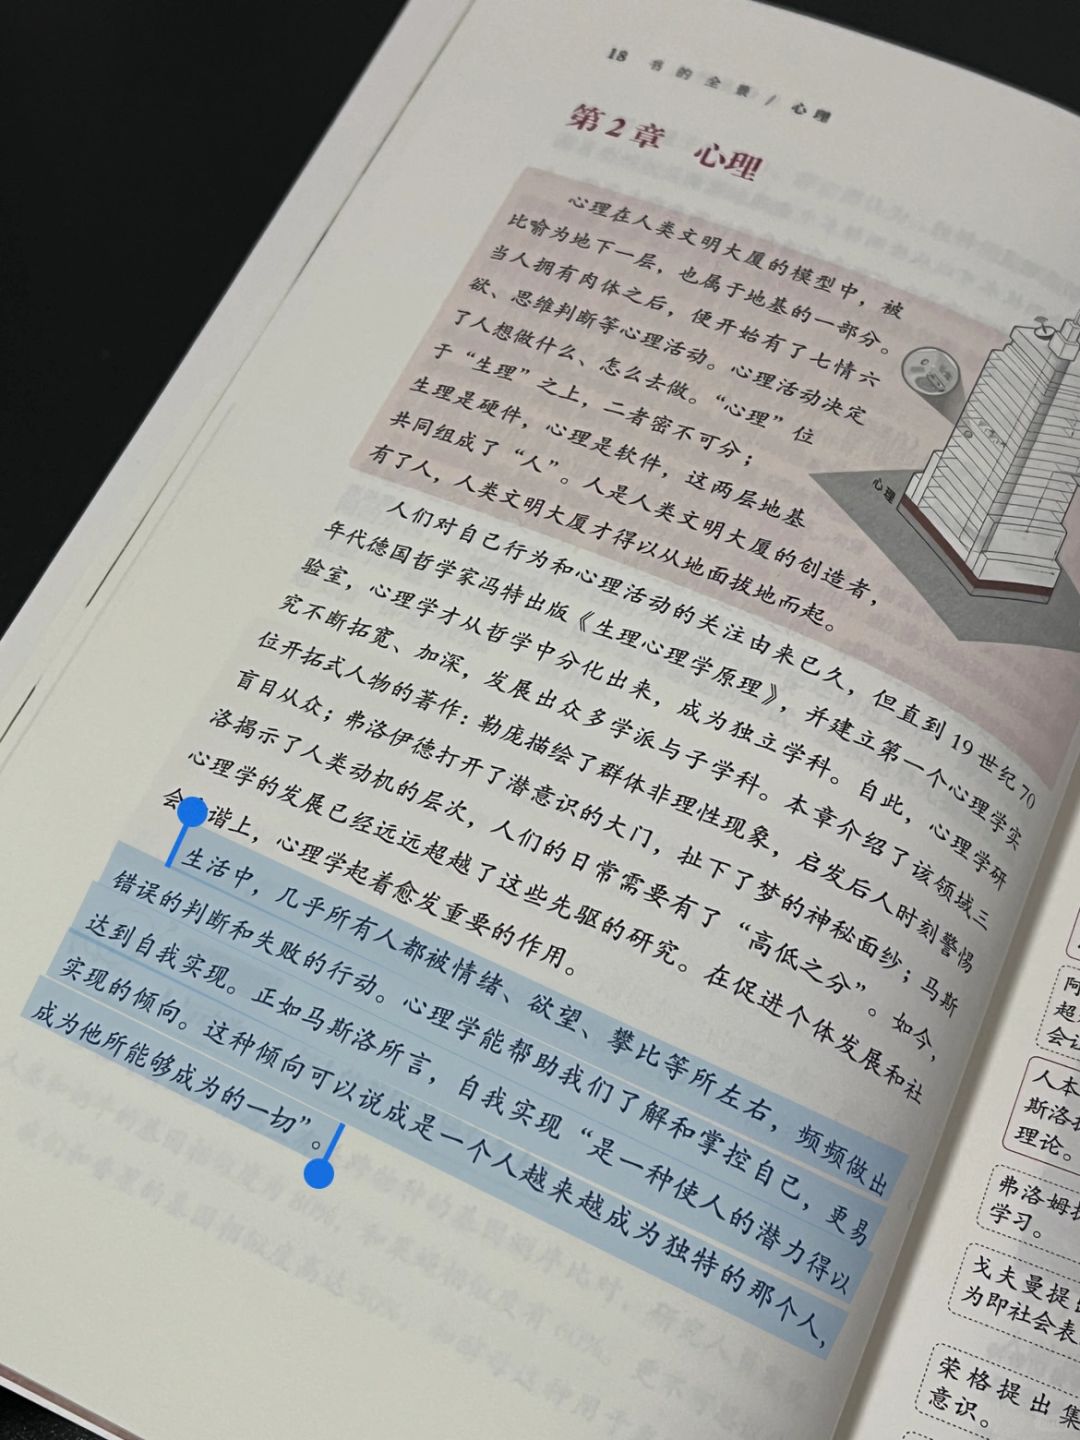 18 书的全景/心理
第2章 心理
心理在人类文明大厦的模型中，被
比喻为地下一层，也属于地基的一部分。
当人拥有肉体之后，便开始有了七情六
欲、思维判断等心理活动。心理活动决定
了人想做什么、怎么去做。“心理”位
于“生理”之上，二者密不可分；
生理是硬件，心理是软件，这两层地基
共同组成了“人”。人是人类文明大厦的创造者，
有了人，人类文明大厦才得以从地面拔地而起。
心理
人们对自己行为和心理活动的关注由来已久，但直到19世纪70
年代德国哲学家冯特出版《生理心理学原理》，并建立第一个心理学实
验室，心理学才从哲学中分化出来，成为独立学科。自此，心理学研
究不断拓宽、加深，发展出众多学派与子学科。本章介绍了该领域三
位开拓式人物的著作：勒庞描绘了群体非理性现象，启发后人时刻警惕
盲目从众；弗洛伊德打开了潜意识的大门，扯下了梦的神秘面纱；马斯
洛揭示了人类动机的层次，人们的日常需要有了“高低之分”。如今，
心理学的发展已经远远超越了这些先驱的研究。在促进个体发展和社
会 谐上，心理学起着愈发重要的作用。
生活中，几乎所有人都被情绪、欲望、攀比等所左右，频频做出
错误的判断和失败的行动。心理学能帮助我们了解和掌控自己，更易
达到自我实现。正如马斯洛所言，自我实现“是一种使人的潜力得以
实现的倾向。这种倾向可以说成是一个人越来越成为独特的那个人，
成为他所能够成为的一切”。
阿
超
会让
人本
斯洛提
理论。
弗洛姆提
学习。
戈夫曼提出
为即社会表
荣格提出集
意识。